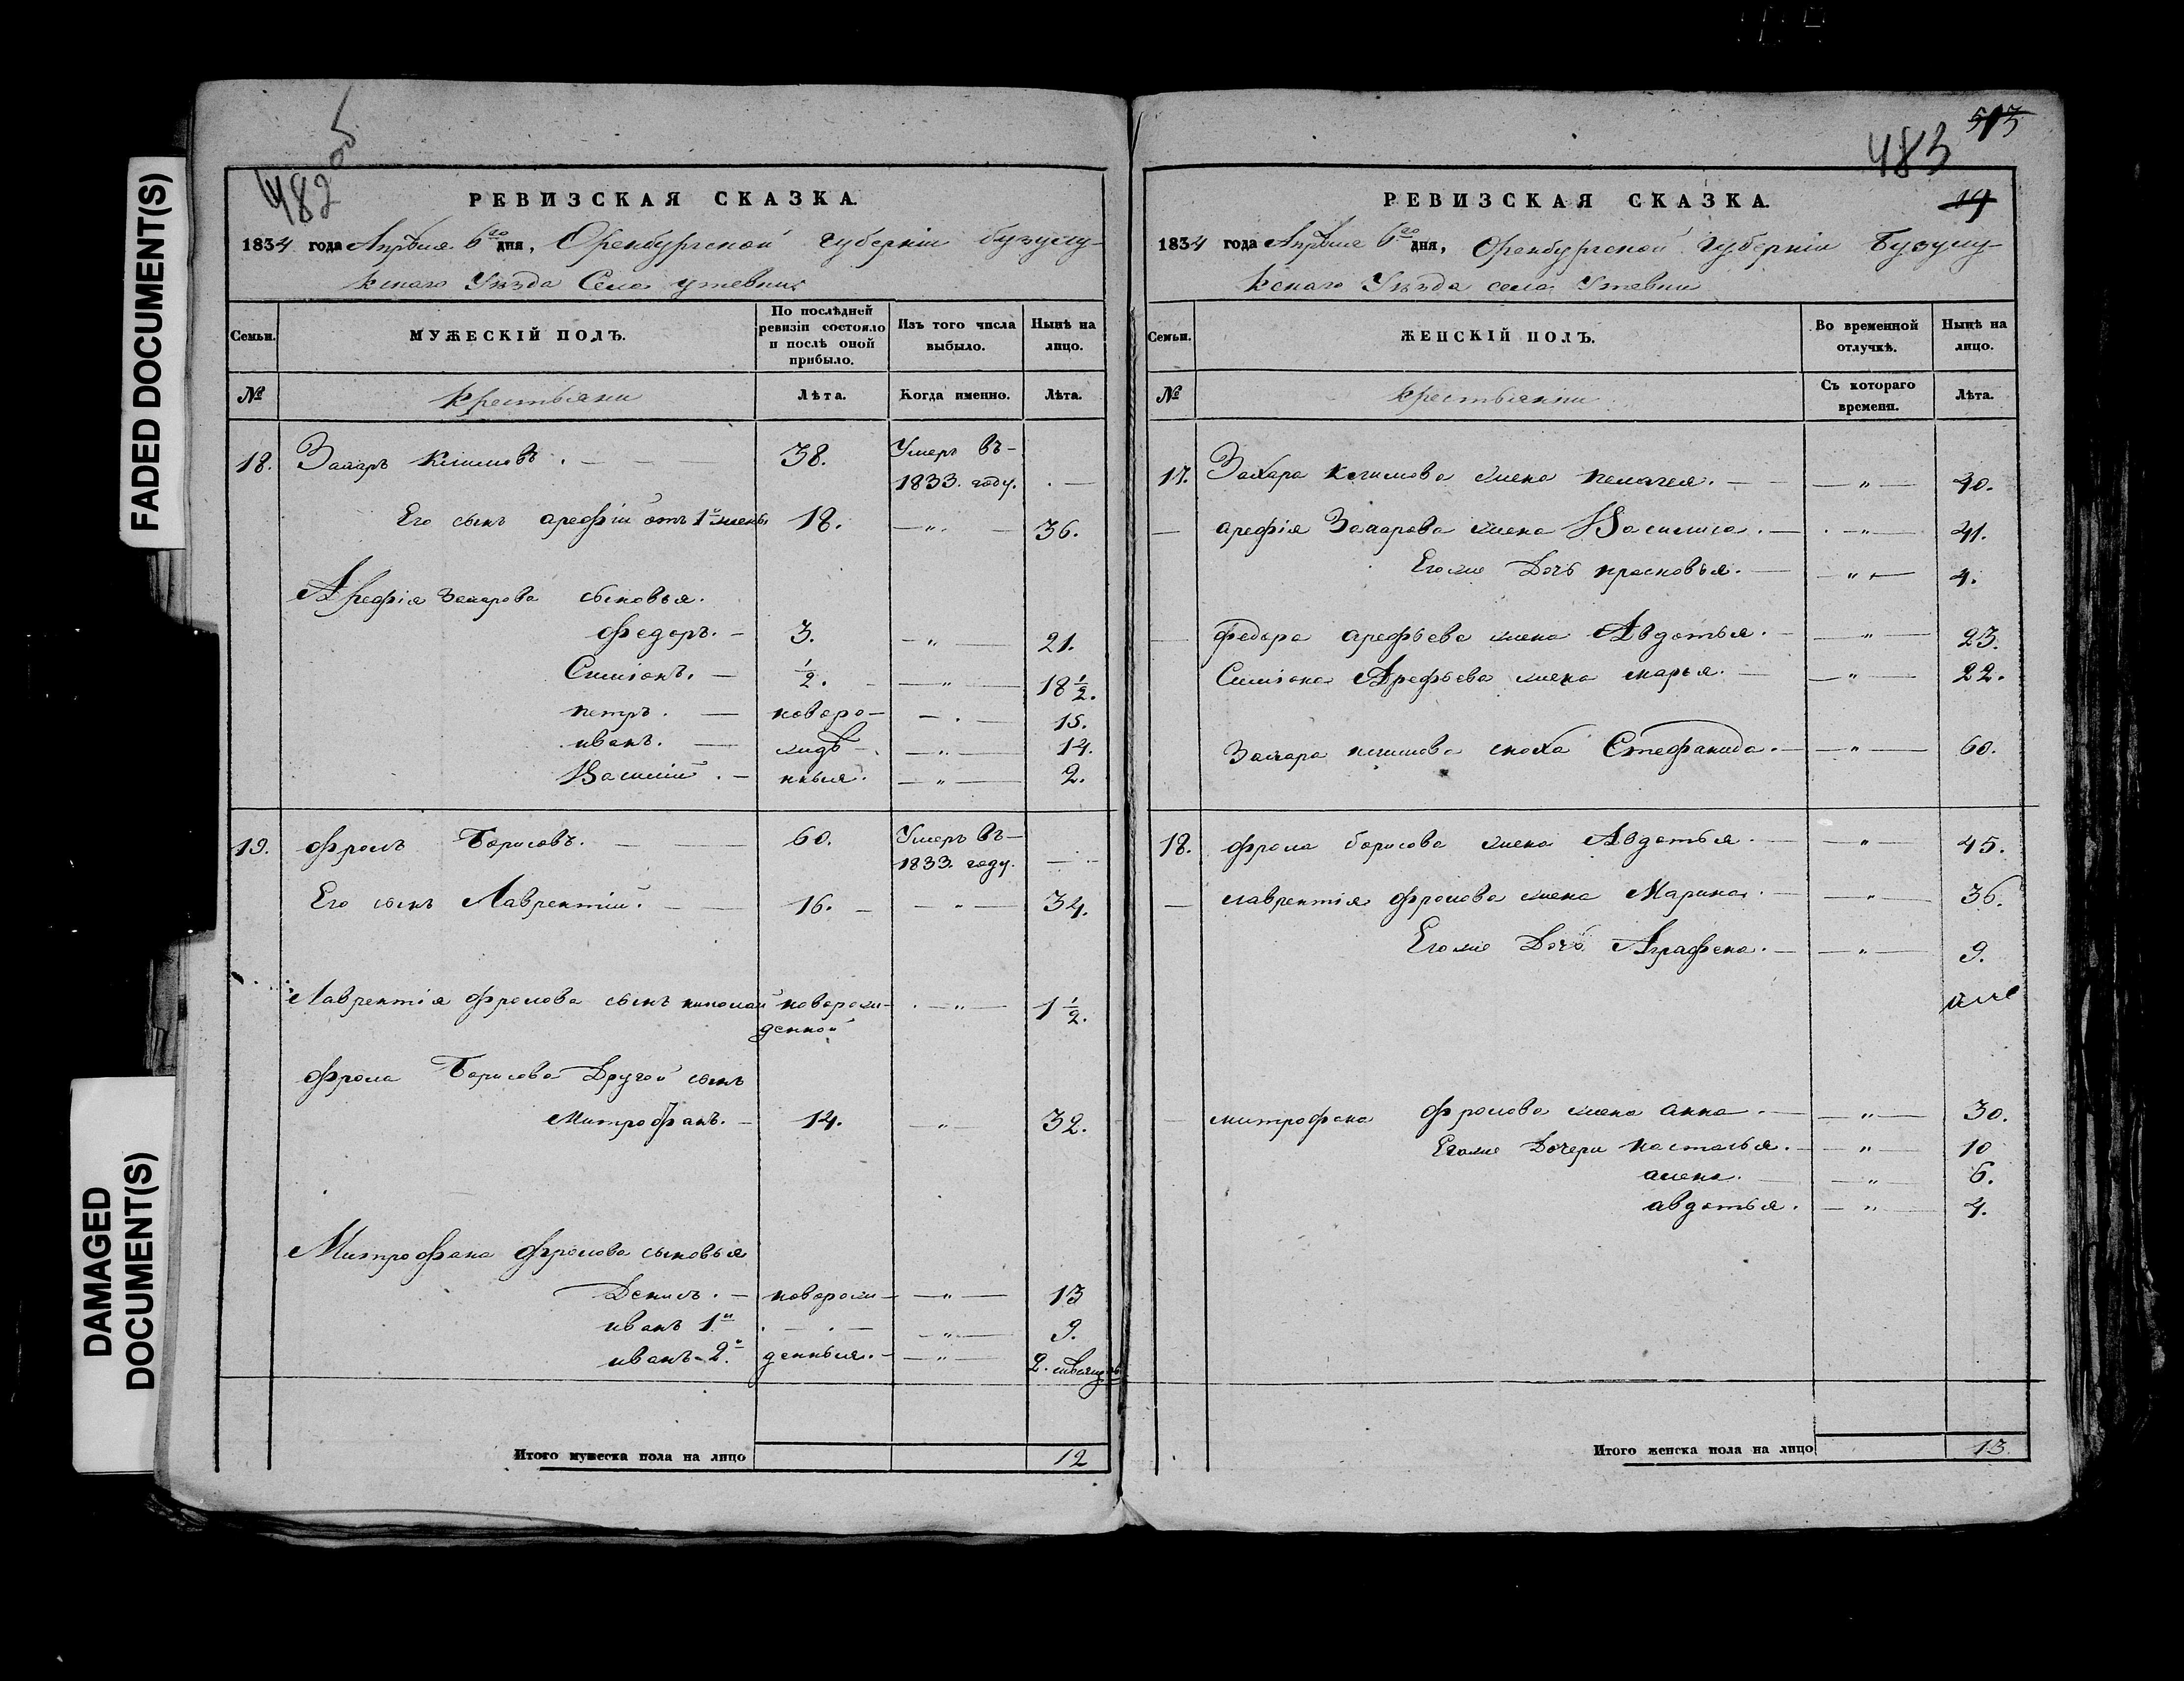 FADED DOCUMENT(S)
DAMAGED
DOCUMENT(S)
482 об
РЕВИЗСКАЯ СКАЗКА.
1834 года Апрѣля 6го дня, Оренбургской губерніи бузулу-
кскаго Уѣзда Села утевки
Семьи.
МУЖЕСКІЙ ПОЛЪ.
По послѣдней ревизіи состояло и послѣ оной прибыло.
Изъ того числа выбыло.
Нынѣ на лицо.
№
крестьяни
Лѣта.
Когда именно.
Лѣта.
18. Захаръ Климовъ. 38. Умеръ въ
1833. году.
Его сынъ арефій отъ 1й жены 18. 36.
Арефія Захарова сыновья.
федоръ. 3. 21.
Симіонъ. 1/2. 18 1/2.
петръ. новоро- 15.
иванъ. жидѣ- 14.
Василій. нныя. 2.
19. фролъ Борисовъ. 60. Умеръ въ
1833. году.
Его сынъ Лаврентій. 16. 34.
Лаврентія фролова сынъ николай новорож- 1 1/2.
денной
фрола Борисова Другой сынъ
Митрофанъ. 14. 32.
Митрофана фролова сыновья
Денисъ. новорож- 13
иванъ 1й 9.
иванъ 2й. денныя. 2. мѣсяцовъ
Итого мужеска пола на лицо 12
513
483
РЕВИЗСКАЯ СКАЗКА.
19
1834 года Апрѣля 6го дня, Оренбургской Губерніи Бузулу-
кскаго Уѣзда села Утевки
Семьи.
ЖЕНСКІЙ ПОЛЪ.
Во временной отлучкѣ.
Нынѣ на лицо.
№
крестьянки
Съ котораго времени.
Лѣта.
17. Захара климова жена пелагея. 40.
арефія Захарова жена Василиса. 41.
Егоже Дочь прасковья. 4.
федора арефьева жена Авдотья. 23.
Симіона Арефьева жена марья. 22.
Захара климова сноха Стефанида. 60.
18. фрола борисова жена Авдотья. 45.
лаврентія фролова жена Марина. 36.
Егоже Дочь Аграфена. 9.
митрофана фролова жена анна. 30.
Егоже Дочери насталья. 10
алена. 6.
авдотья. 4.
Итого женска пола на лицо 13.